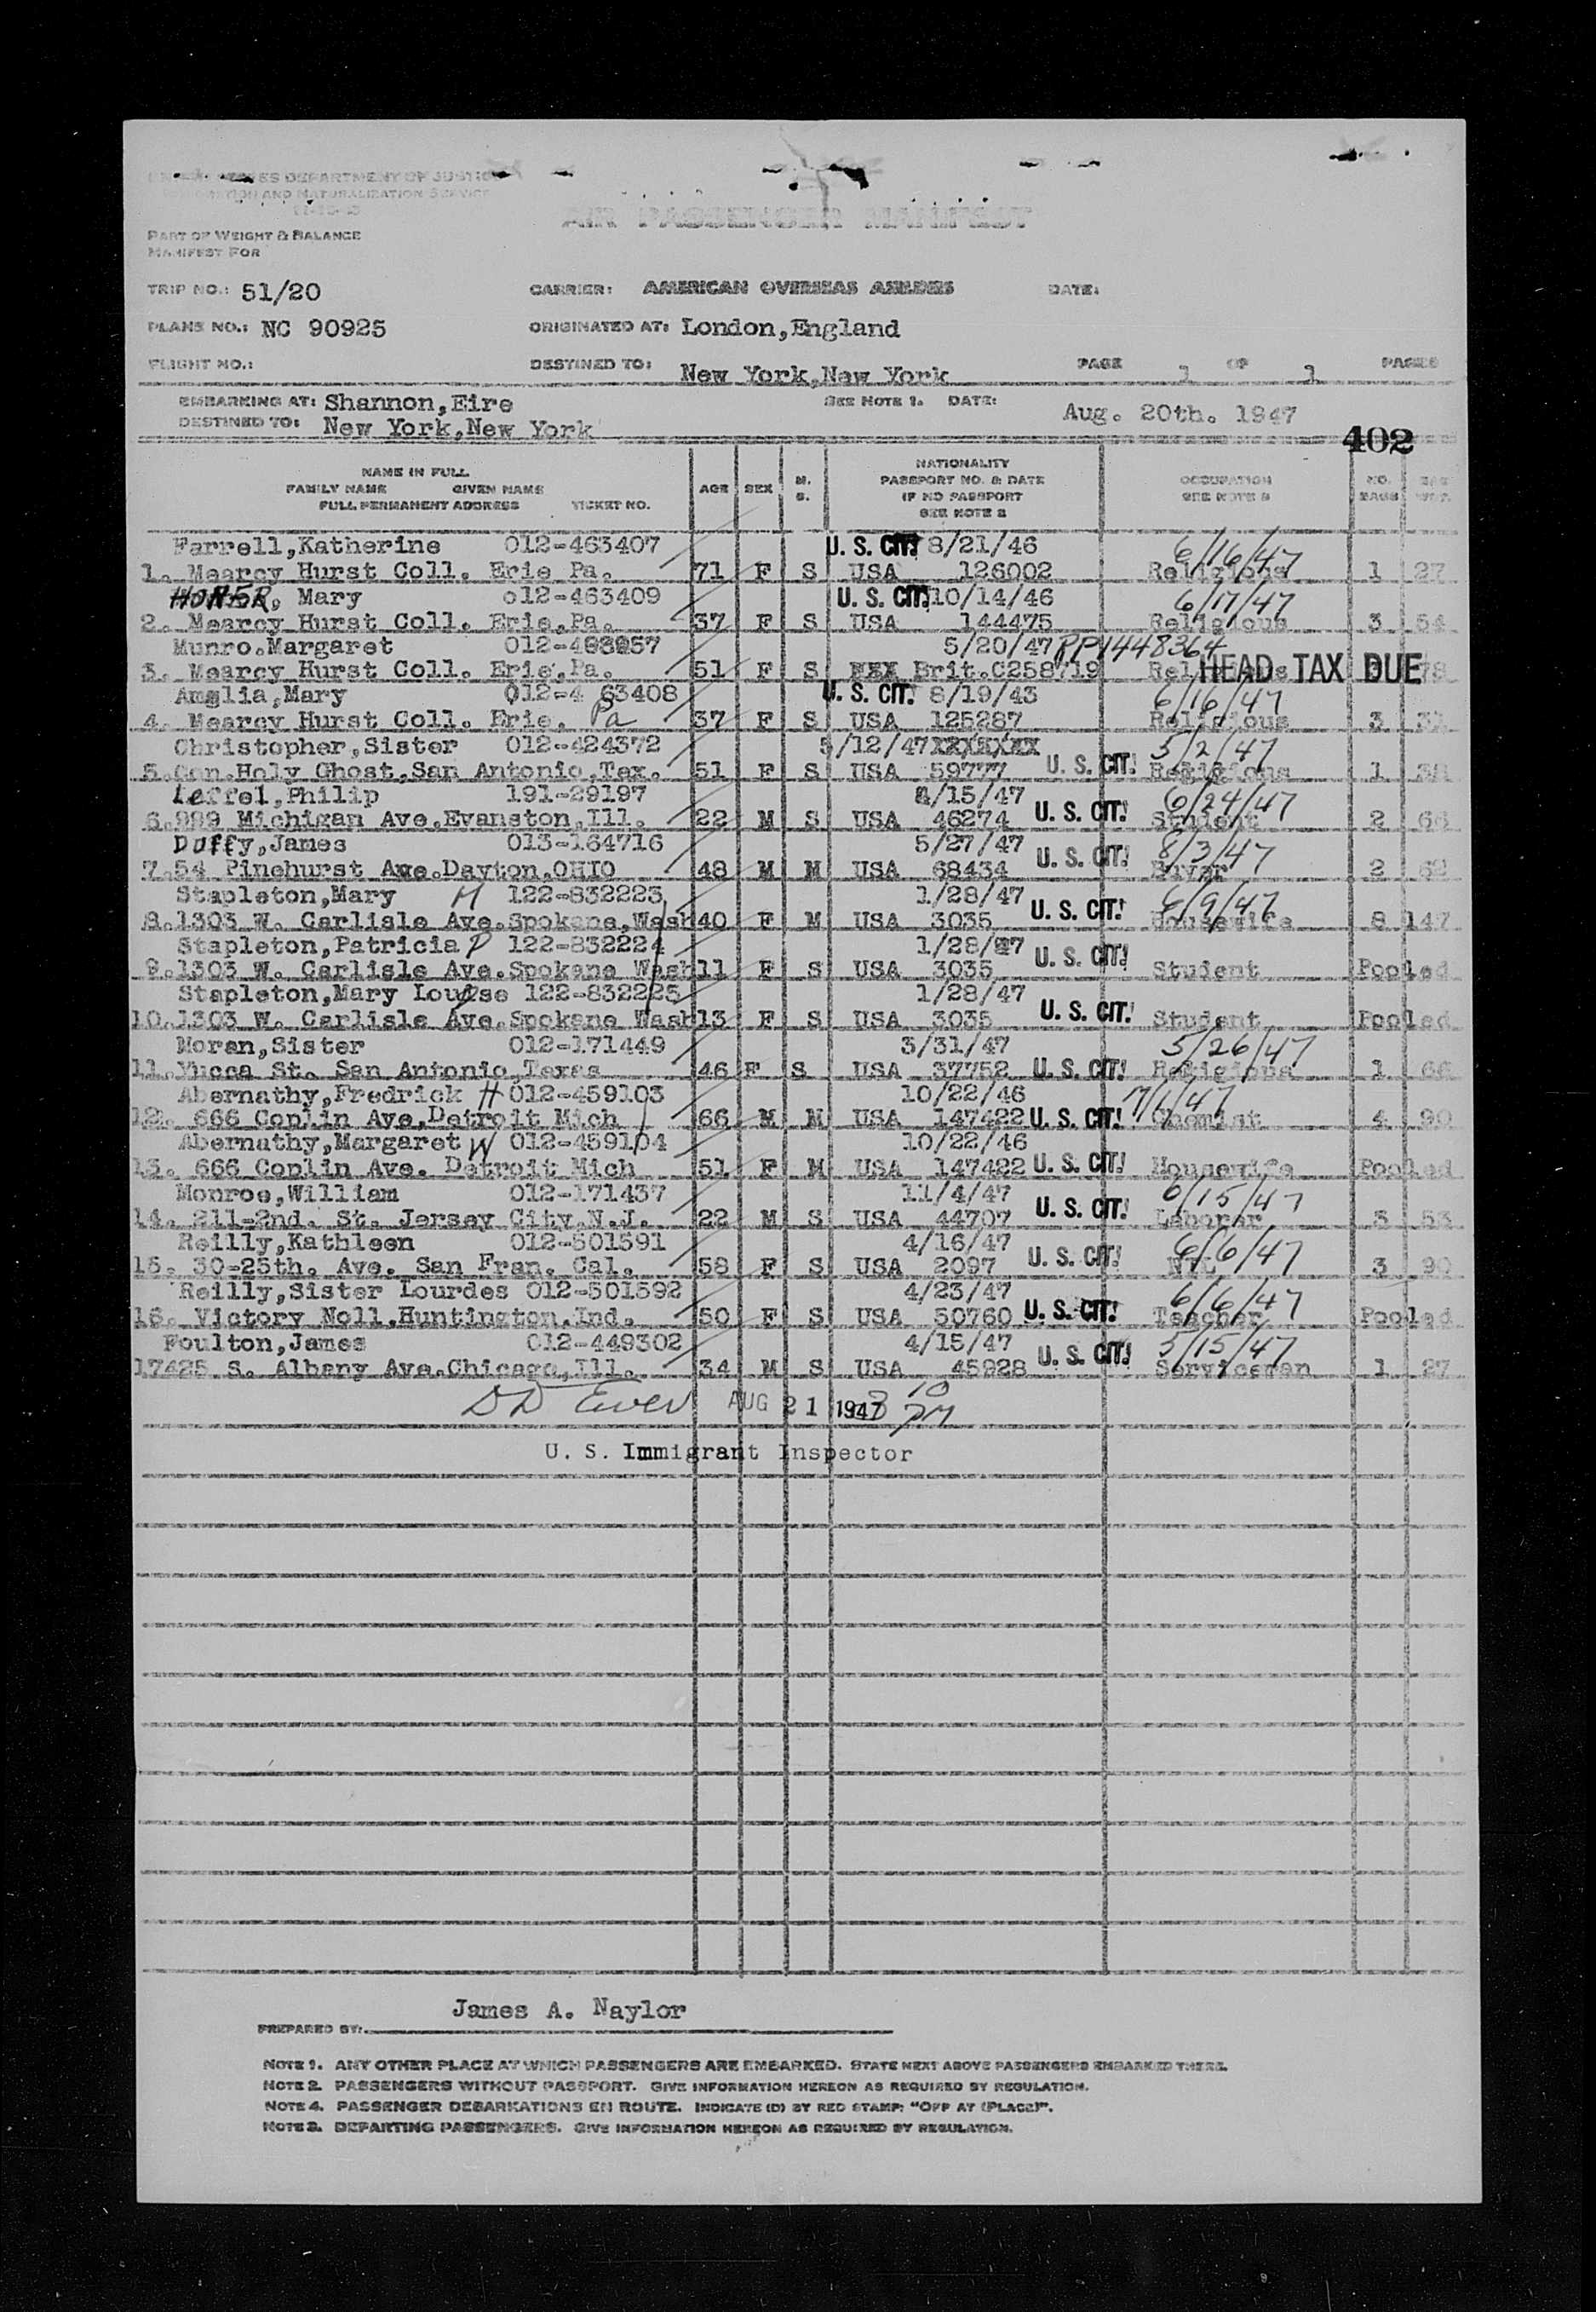 UNITED STATES DEPARTMENT OF JUSTICE
IMMIGRATION AND NATURALIZATION SERVICE
AIR PASSENGER MANIFEST
PART OF WEIGHT & BALANCE
MANIFEST FOR
TRIP NO.: 51/20 CARRIER: AMERICAN OVERSEAS AIRLINES DATE:
PLANE NO.: NC 90925 ORIGINATED AT: London,England
FLIGHT NO.: DESTINED TO: New York,Naw York PAGE 1 OF 1 PAGES
EMBARKING AT: Shannon,Eire SEE NOTE 1. DATE: Aug. 20th. 1947
DESTINED TO: New York,New York
402
NAME IN FULL
FAMILY NAME GIVEN NAME
FULL PERMANENT ADDRESS TICKET NO. AGE SEX M. S. NATIONALITY PASSPORT NO. & DATE IF NO PASSPORT SEE NOTE 2 OCCUPATION SEE NOTE 3 NO. BAGS BAG WGT.
Farrell,Katherine 012-463407 U. S. CIT! 8/21/46 6/16/47
1. Mearcy Hurst Coll. Erie Pa. 71 F S USA 126002 Religious 1 27
HONER, Mary 012-463409 U. S. CIT! 10/14/46 6/17/47
2. Mearcy Hurst Coll. Erie,Pa. 37 F S USA 144475 Religious 3 54
Munro.Margaret 5/20/47 RP1448364
3. Mearcy Hurst Coll. Erie,Pa. 51 F S Brit.C258719 Religious HEAD TAX DUE 78
Amelia,Mary 012-4 63408 U. S. CIT! 8/19/43 6/16/47
4. Mearcy Hurst Coll. Erie, Pa 37 F S USA 125287 Religious 3
Christopher,Sister 012-424372 5/12/47 XXXXXXX 5/2/47
5. Con.Holy Ghost,San Antonio,Tex. 51 F S USA 59777 U. S. CIT! Religious 1
Leffel,Philip 191-29197 /15/47 6/24/47
6.999 Michigan Ave,Evanston,Ill. 22 M S USA 46274 U. S. CIT! Student 2 66
Duffy,James 013-164716 5/27/47 8/3/47
7.54 Pinehurst Ave.Dayton,OHIO 48 M M USA 68434 U. S. CIT! Buyer 2 62
Stapleton,Mary M 122-832223 1/28/47 6/9/47
8.1303 W. Carlisle Ave.Spokane,Wash 40 F M USA 3035 U. S. CIT! Housewife 8 147
Stapleton,Patricia D 122-832224 1/28/47
9.1303 W. Carlisle Ave.Spokane Wash 11 F S USA 3035 U. S. CIT! Student Pooled
Stapleton,Mary Louise 122-832225 1/28/47
10.1303 W. Carlisle Ave.Spokane Wash 13 F S USA 3035 U. S. CIT! Student Pooled
Moran,Sister 012-171449 3/31/47 5/26/47
11.Yucca St. San Antonio,Texas 46 F S USA 37752 U. S. CIT! Religious 1 66
Abernathy,Fredrick H 012-459103 10/22/46 7/1/47
12. 666 Conlin Ave,Detroit Mich 66 M M USA 147422 U. S. CIT! Chemist 4 90
Abernathy,Margaret W 012-459104 10/22/46
13. 666 Conlin Ave. Detroit Mich 51 F M USA 147422 U. S. CIT! Housewife Pooled
Monroe,William 012-171437 11/4/47 6/15/47
14. 211-2nd. St. Jersey City,N.J. 22 M S USA 44707 U. S. CIT! Laborer 3 53
Reilly,Kathleen 012-501591 4/16/47 6/6/47
15. 30-25th. Ave. San Fran. Cal. 58 F S USA 2097 U. S. CIT! NIL 3 90
Reilly,Sister Lourdes 012-501592 4/23/47 6/6/47
16. Victory Noll,Huntington,Ind. 50 F S USA 50760 U. S. CIT! Teacher Pooled
Foulton,James 012-449302 4/15/47 5/15/47
17425 S. Albany Ave.Chicago,Ill. 34 M S USA 45928 U. S. CIT! Serviceman 1 27
AUG 21 1947
U. S. Immigrant Inspector
James A. Naylor
PREPARED BY:
NOTE 1. ANY OTHER PLACE AT WHICH PASSENGERS ARE EMBARKED. STATE NEXT ABOVE PASSENGERS EMBARKED THERE.
NOTE 2. PASSENGERS WITHOUT PASSPORT. GIVE INFORMATION HEREON AS REQUIRED BY REGULATION.
NOTE 4. PASSENGER DEBARKATIONS EN ROUTE. INDICATE (D) BY RED STAMP: "OFF AT (PLACE)".
NOTE 3. DEPARTING PASSENGERS. GIVE INFORMATION HEREON AS REQUIRED BY REGULATION.